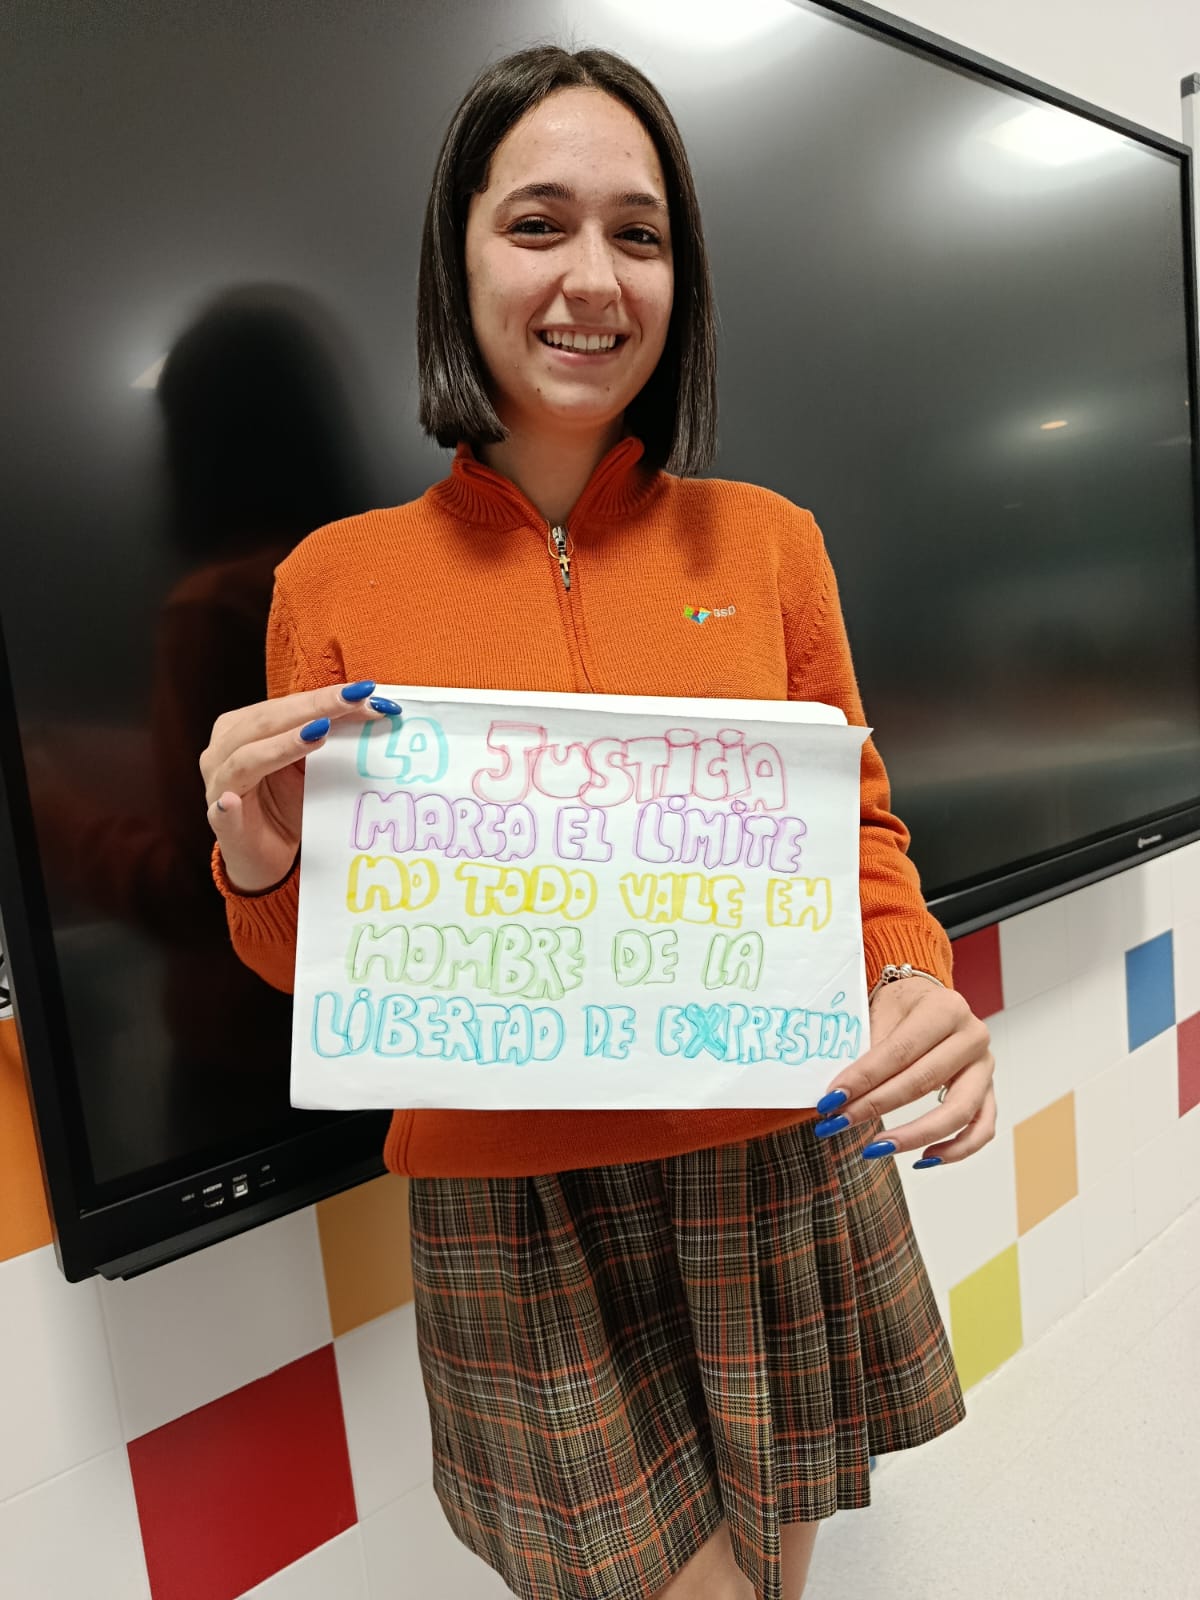 BSD
LA JUSTICIA
MARCA EL LIMITE
NO TODO VALE EN
NOMBRE DE LA
LIBERTAD DE EXPRESIÓN